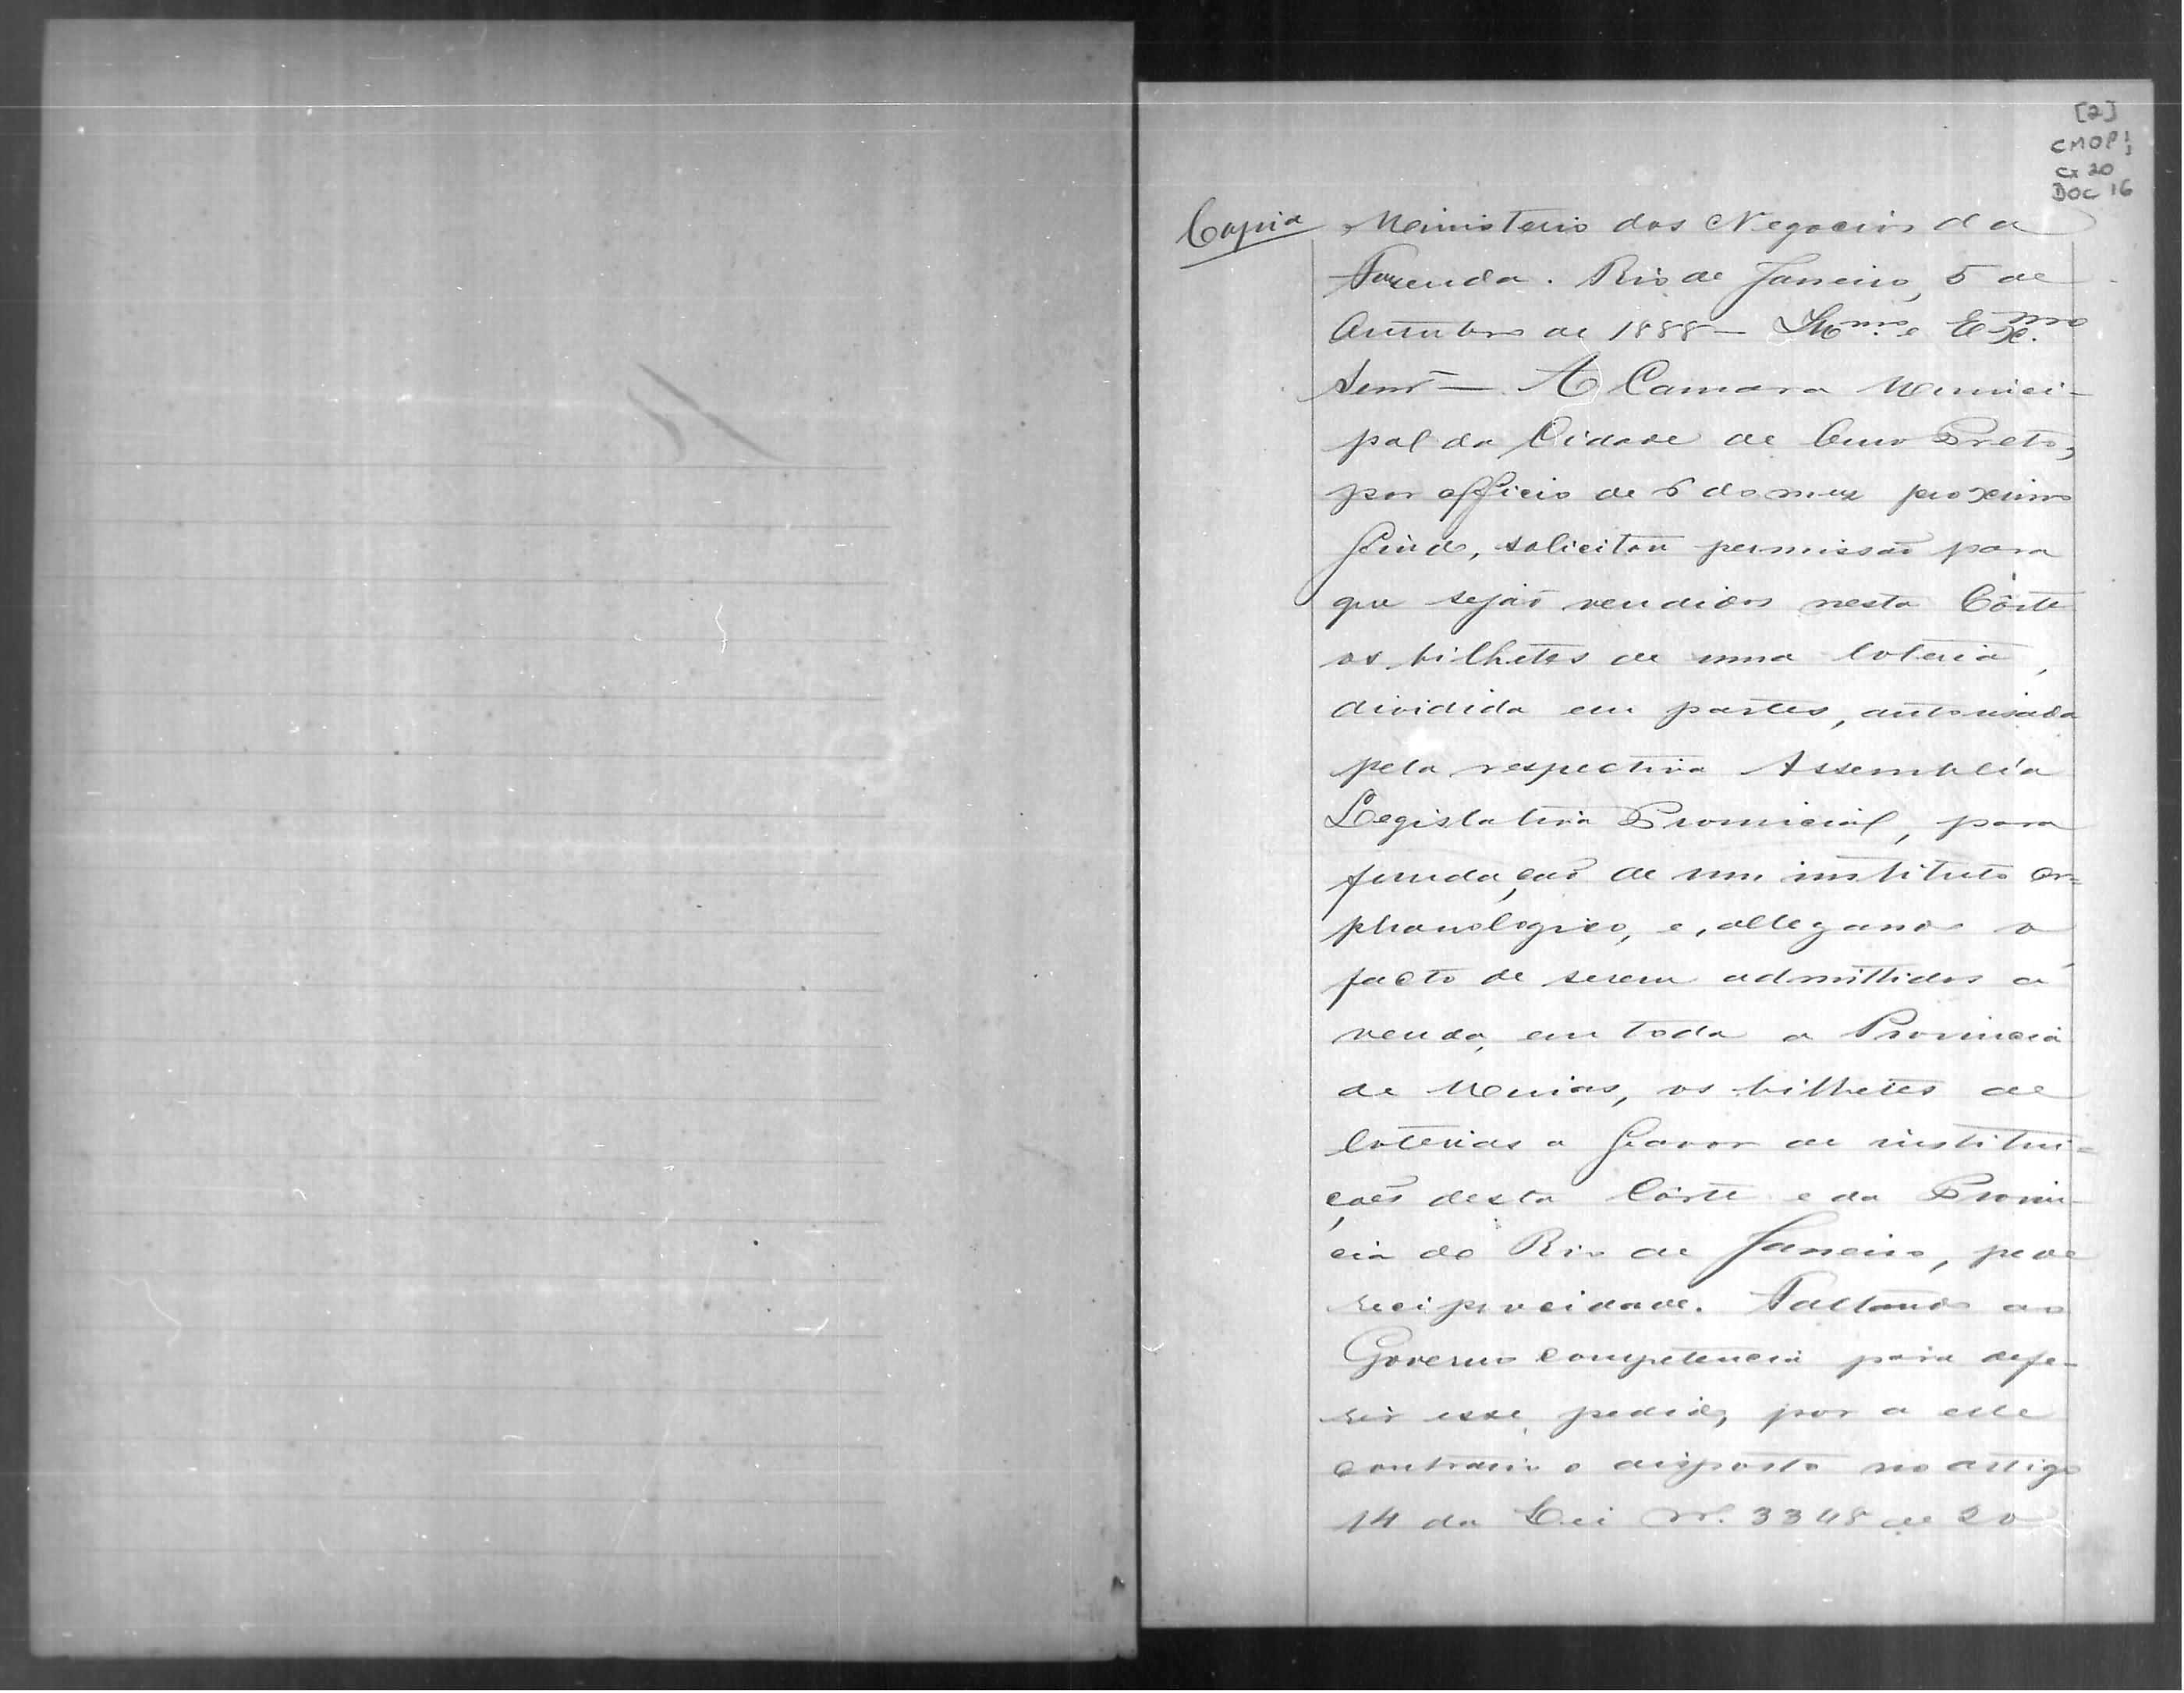 [2]
CMOP
Cx 20
DOC 16
Copia Ministerio dos Negocios da
Fazenda. Rio de Janeiro, 5 de
Outubro de 1888 — Illmo. e Exmo.
Senr — A Camara Munici-
pal da Cidade de Ouro Preto,
por officio de 6 do mez proximo
findo, solicitou permissaõ para
que sejaõ vendidos nesta Côrte
os bilhetes de uma loteria,
dividida em partes, autorisada
pela respectiva Assembléa
Legislativa Provincial, para
fundaçaõ de um instituto or=
phanologico, e, allegando o
facto de serem admittidos á
venda, em toda a Provincia
de Minas, os bilhetes de
loterias a favor de institui=
çoẽs desta Côrte e da Provin-
cia do Rio de Janeiro, pede
reciprocidade. Faltando ao
Governo competencia para defe-
rir esse pedido, por a elle
contrario o disposto no artigo
14 da Lei Nº. 3348 de 20